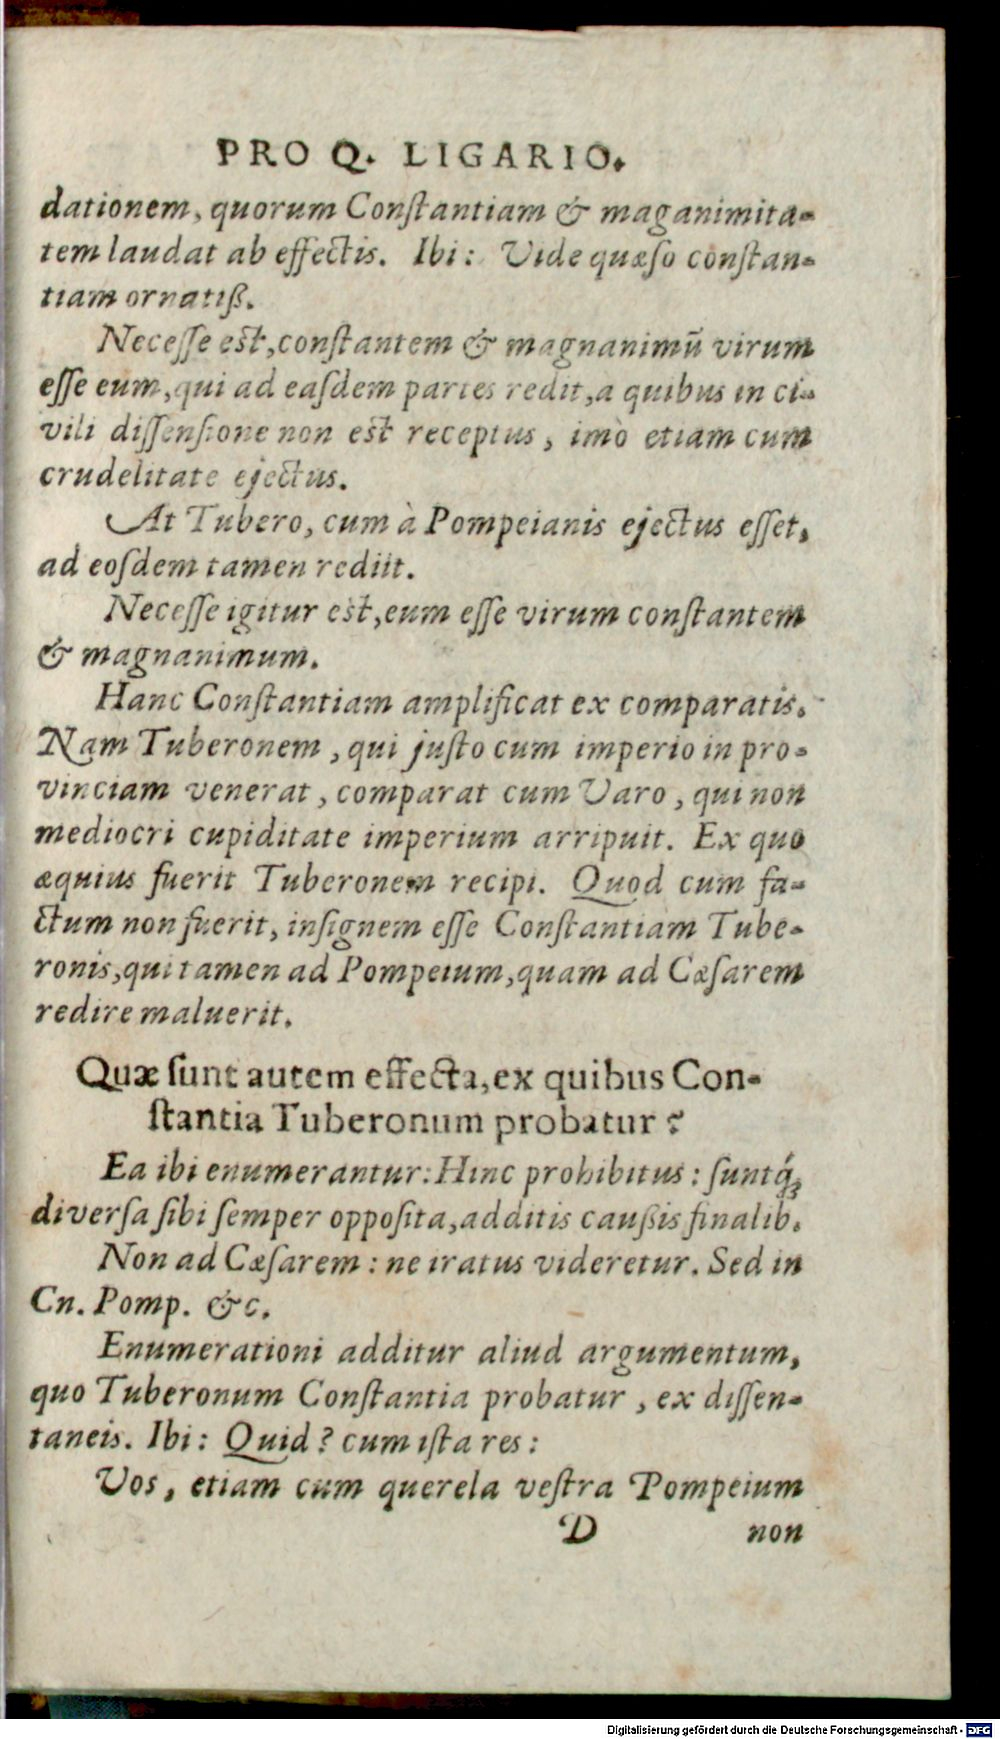 PRO Q. LIGARIO.
dationem, quorum Conſtantiam & maganimita-
tem laudat ab effectis. Ibi: Vide quæſo conſtan-
tiam ornatiß.
Neceſſe eſt, conſtantem & magnanimũ virum
eſſe eum, qui ad eaſdem partes redit, a quibus in ci-
vili diſſenſione non eſt receptus, imò etiam cum
crudelitate ejectus.
At Tubero, cum à Pompeianis ejectus eſſet,
ad eoſdem tamen rediit.
Neceſſe igitur eſt, eum eſſe virum conſtantem
& magnanimum.
Hanc Conſtantiam amplificat ex comparatis.
Nam Tuberonem, qui juſto cum imperio in pro-
vinciam venerat, comparat cum Varo, qui non
mediocri cupiditate imperium arripuit. Ex quo
æquius fuerit Tuberonem recipi. Quod cum fa-
ctum non fuerit, inſignem eſſe Conſtantiam Tube-
ronis, qui tamen ad Pompeium, quam ad Cæſarem
redire maluerit.
Quæ ſunt autem effecta, ex quibus Con-
ſtantia Tuberonum probatur?
Ea ibi enumerantur: Hinc prohibitus: ſuntq́;
diverſa ſibi ſemper oppoſita, additis caußis finalib.
Non ad Cæſarem: ne iratus videretur. Sed in
Cn. Pomp. &c.
Enumerationi additur aliud argumentum,
quo Tuberonum Conſtantia probatur, ex diſſen-
taneis. Ibi: Quid? cum iſta res:
Vos, etiam cum querela veſtra Pompeium
D non
Digitalisierung gefördert durch die Deutsche Forschungsgemeinschaft - DFG